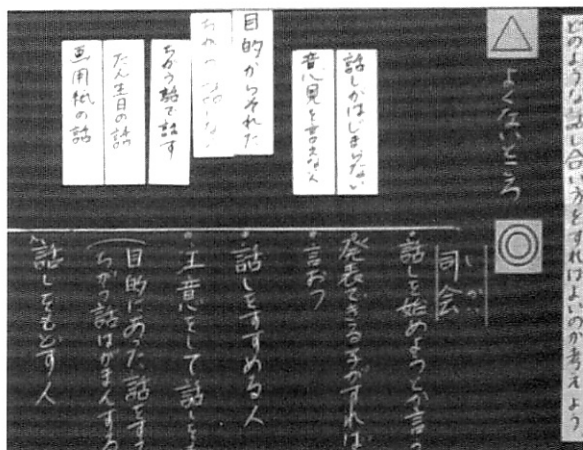 どのような話し合い方をすればよいのか考えよう
よくないところ
話しがはじまらない
意見を言えない人
目的からそれた
ちがう話で話す
たん生日の話
画用紙の話
しかい
司会
・話しを始めようとか言う
発表できる子がすれば
・言おう
・話しをすすめる人
・注意をして話しを
(目的にあった話をす
ちがう話はがまんする
話しをもどす人